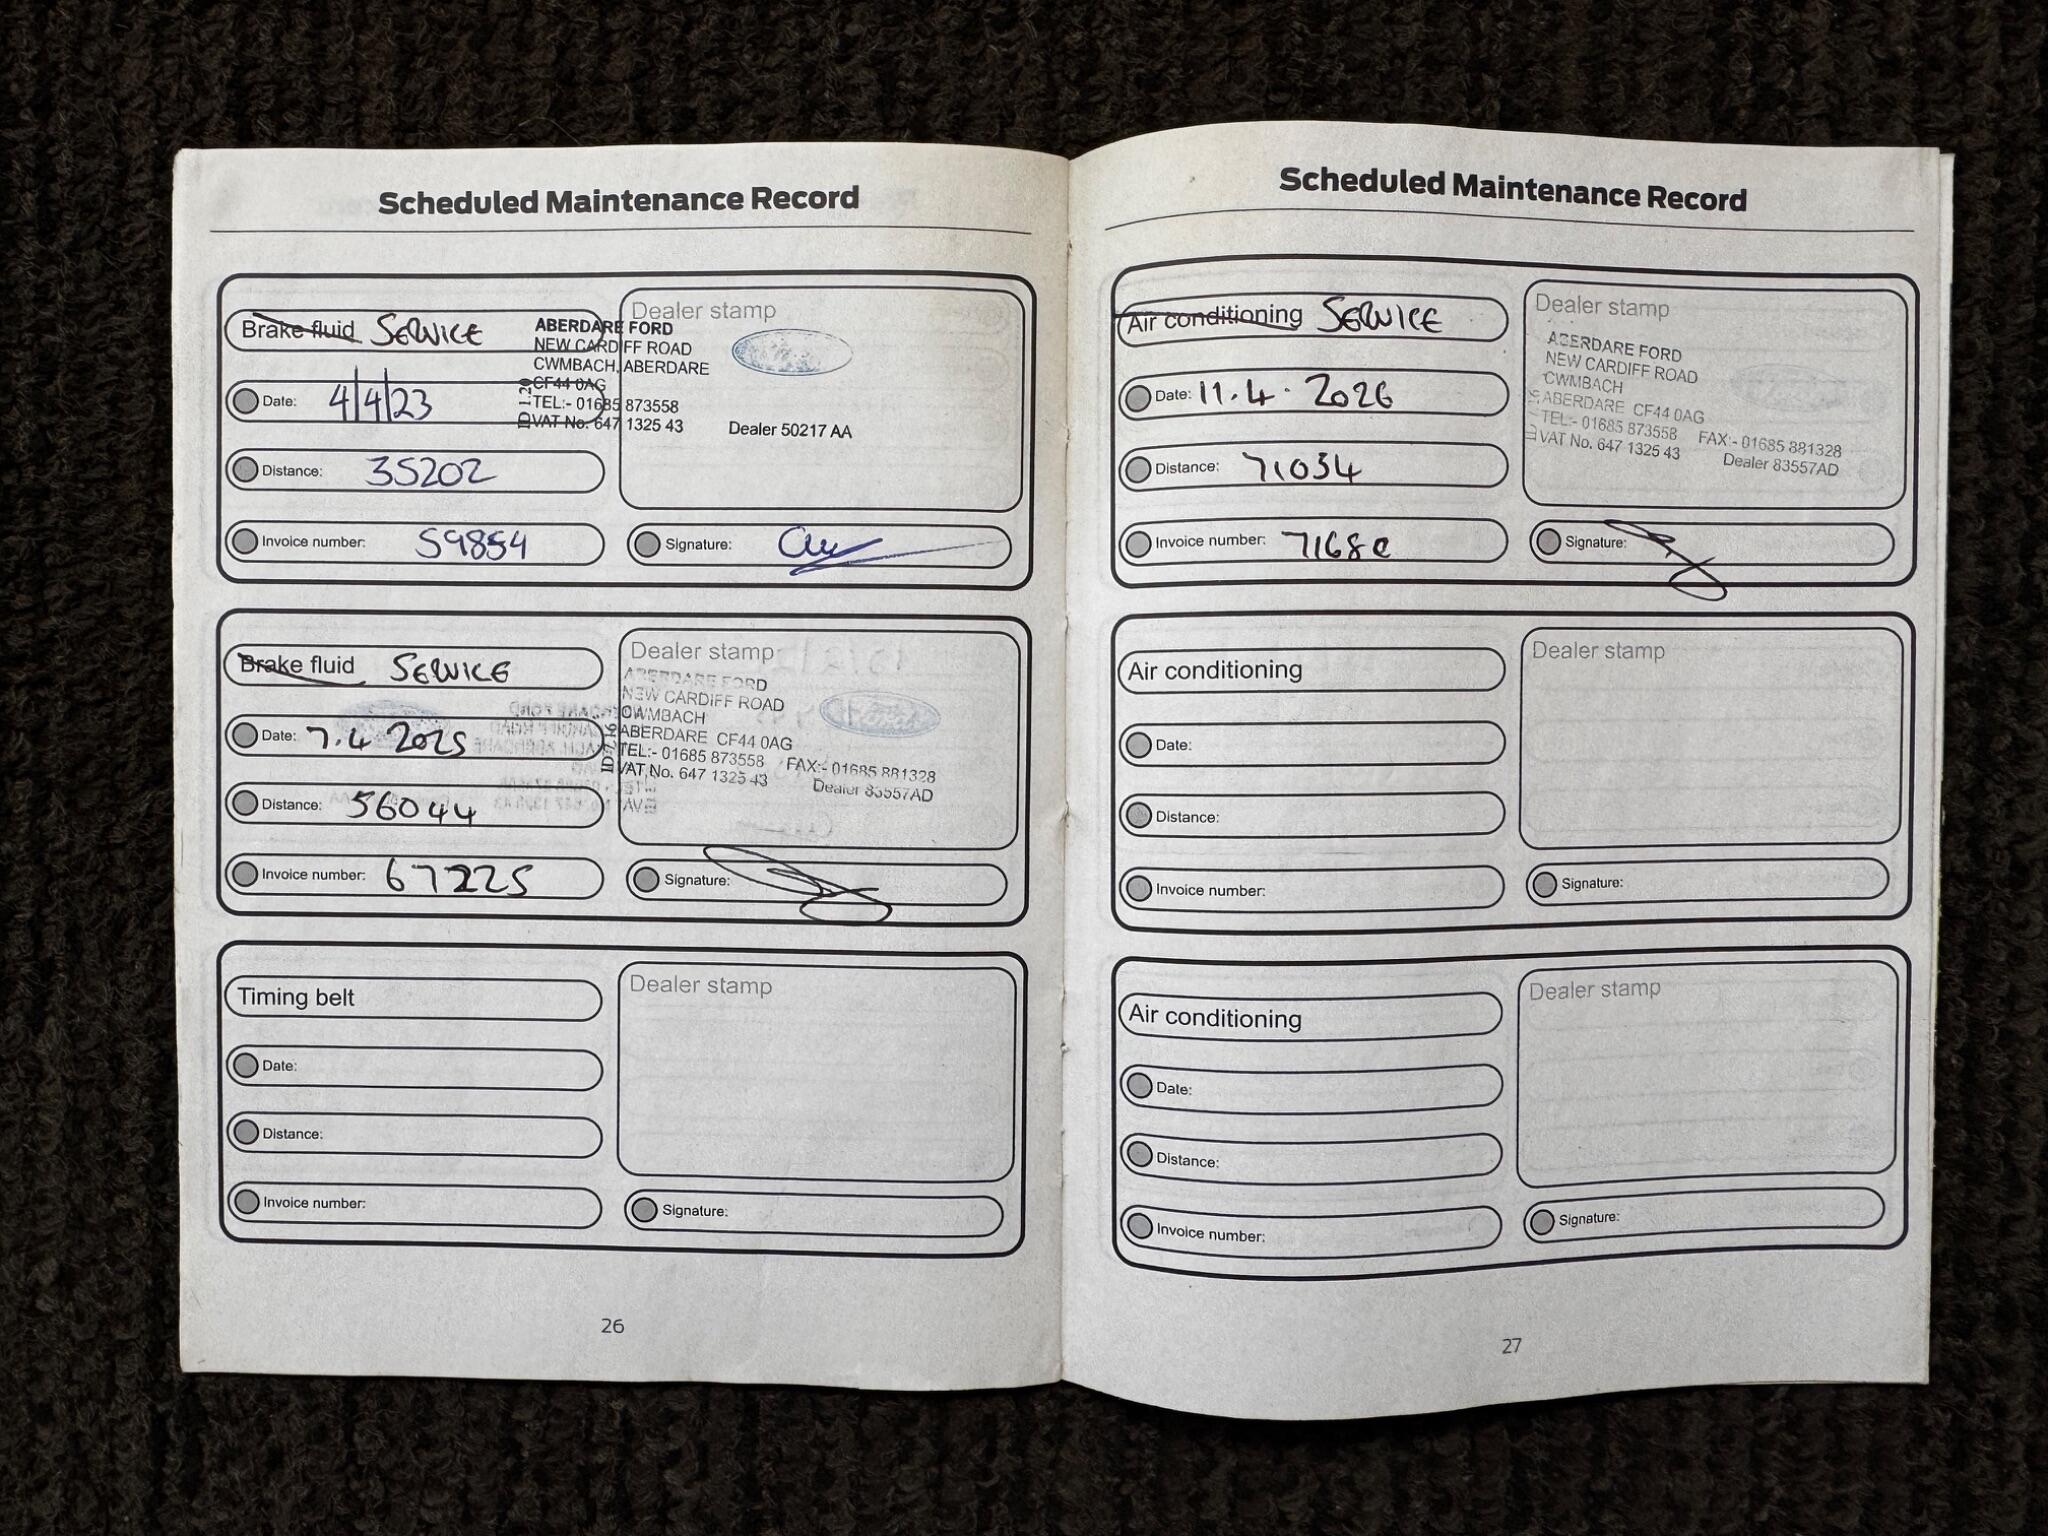 Scheduled Maintenance Record
Brake fluid SERVICE
Date: 4/4/23
Distance: 35202
Invoice number: 59854
Dealer stamp
ABERDARE FORD
NEW CARDIFF ROAD
CWMBACH, ABERDARE
CF44 0AG
TEL:- 01685 873558
VAT No. 647 1325 43 Dealer 50217 AA
Signature:
Brake fluid SERVICE
Date: 7.4 2025
Distance: 56044
Invoice number: 67225
Dealer stamp
ABERDARE FORD
NEW CARDIFF ROAD
CWMBACH
ABERDARE CF44 0AG
TEL:- 01685 873558 FAX:- 01685 881328
VAT No. 647 1325 43 Dealer 83557AD
Signature:
Timing belt
Date:
Distance:
Invoice number:
Dealer stamp
Signature:
26
Scheduled Maintenance Record
Air conditioning SERVICE
Date: 11.4.2026
Distance: 71034
Invoice number:
Dealer stamp
ABERDARE FORD
NEW CARDIFF ROAD
CWMBACH
ABERDARE CF44 0AG
TEL:- 01685 873558 FAX:- 01685 881328
VAT No. 647 1325 43 Dealer 83557AD
Signature:
Air conditioning
Date:
Distance:
Invoice number:
Dealer stamp
Signature:
Air conditioning
Date:
Distance:
Invoice number:
Dealer stamp
Signature:
27